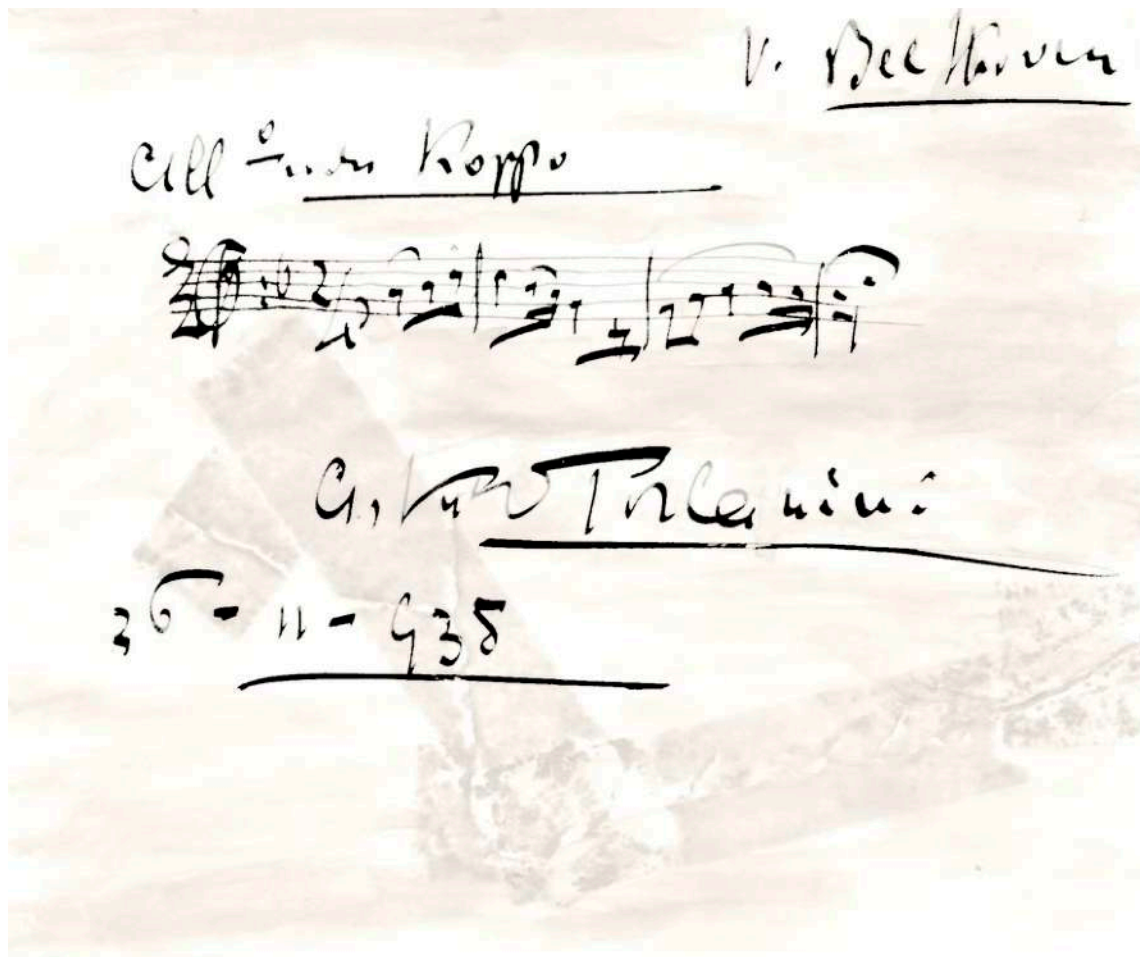 V. Beethoven
All° non troppo
Arturo Toscanini
26 - 11 - 935